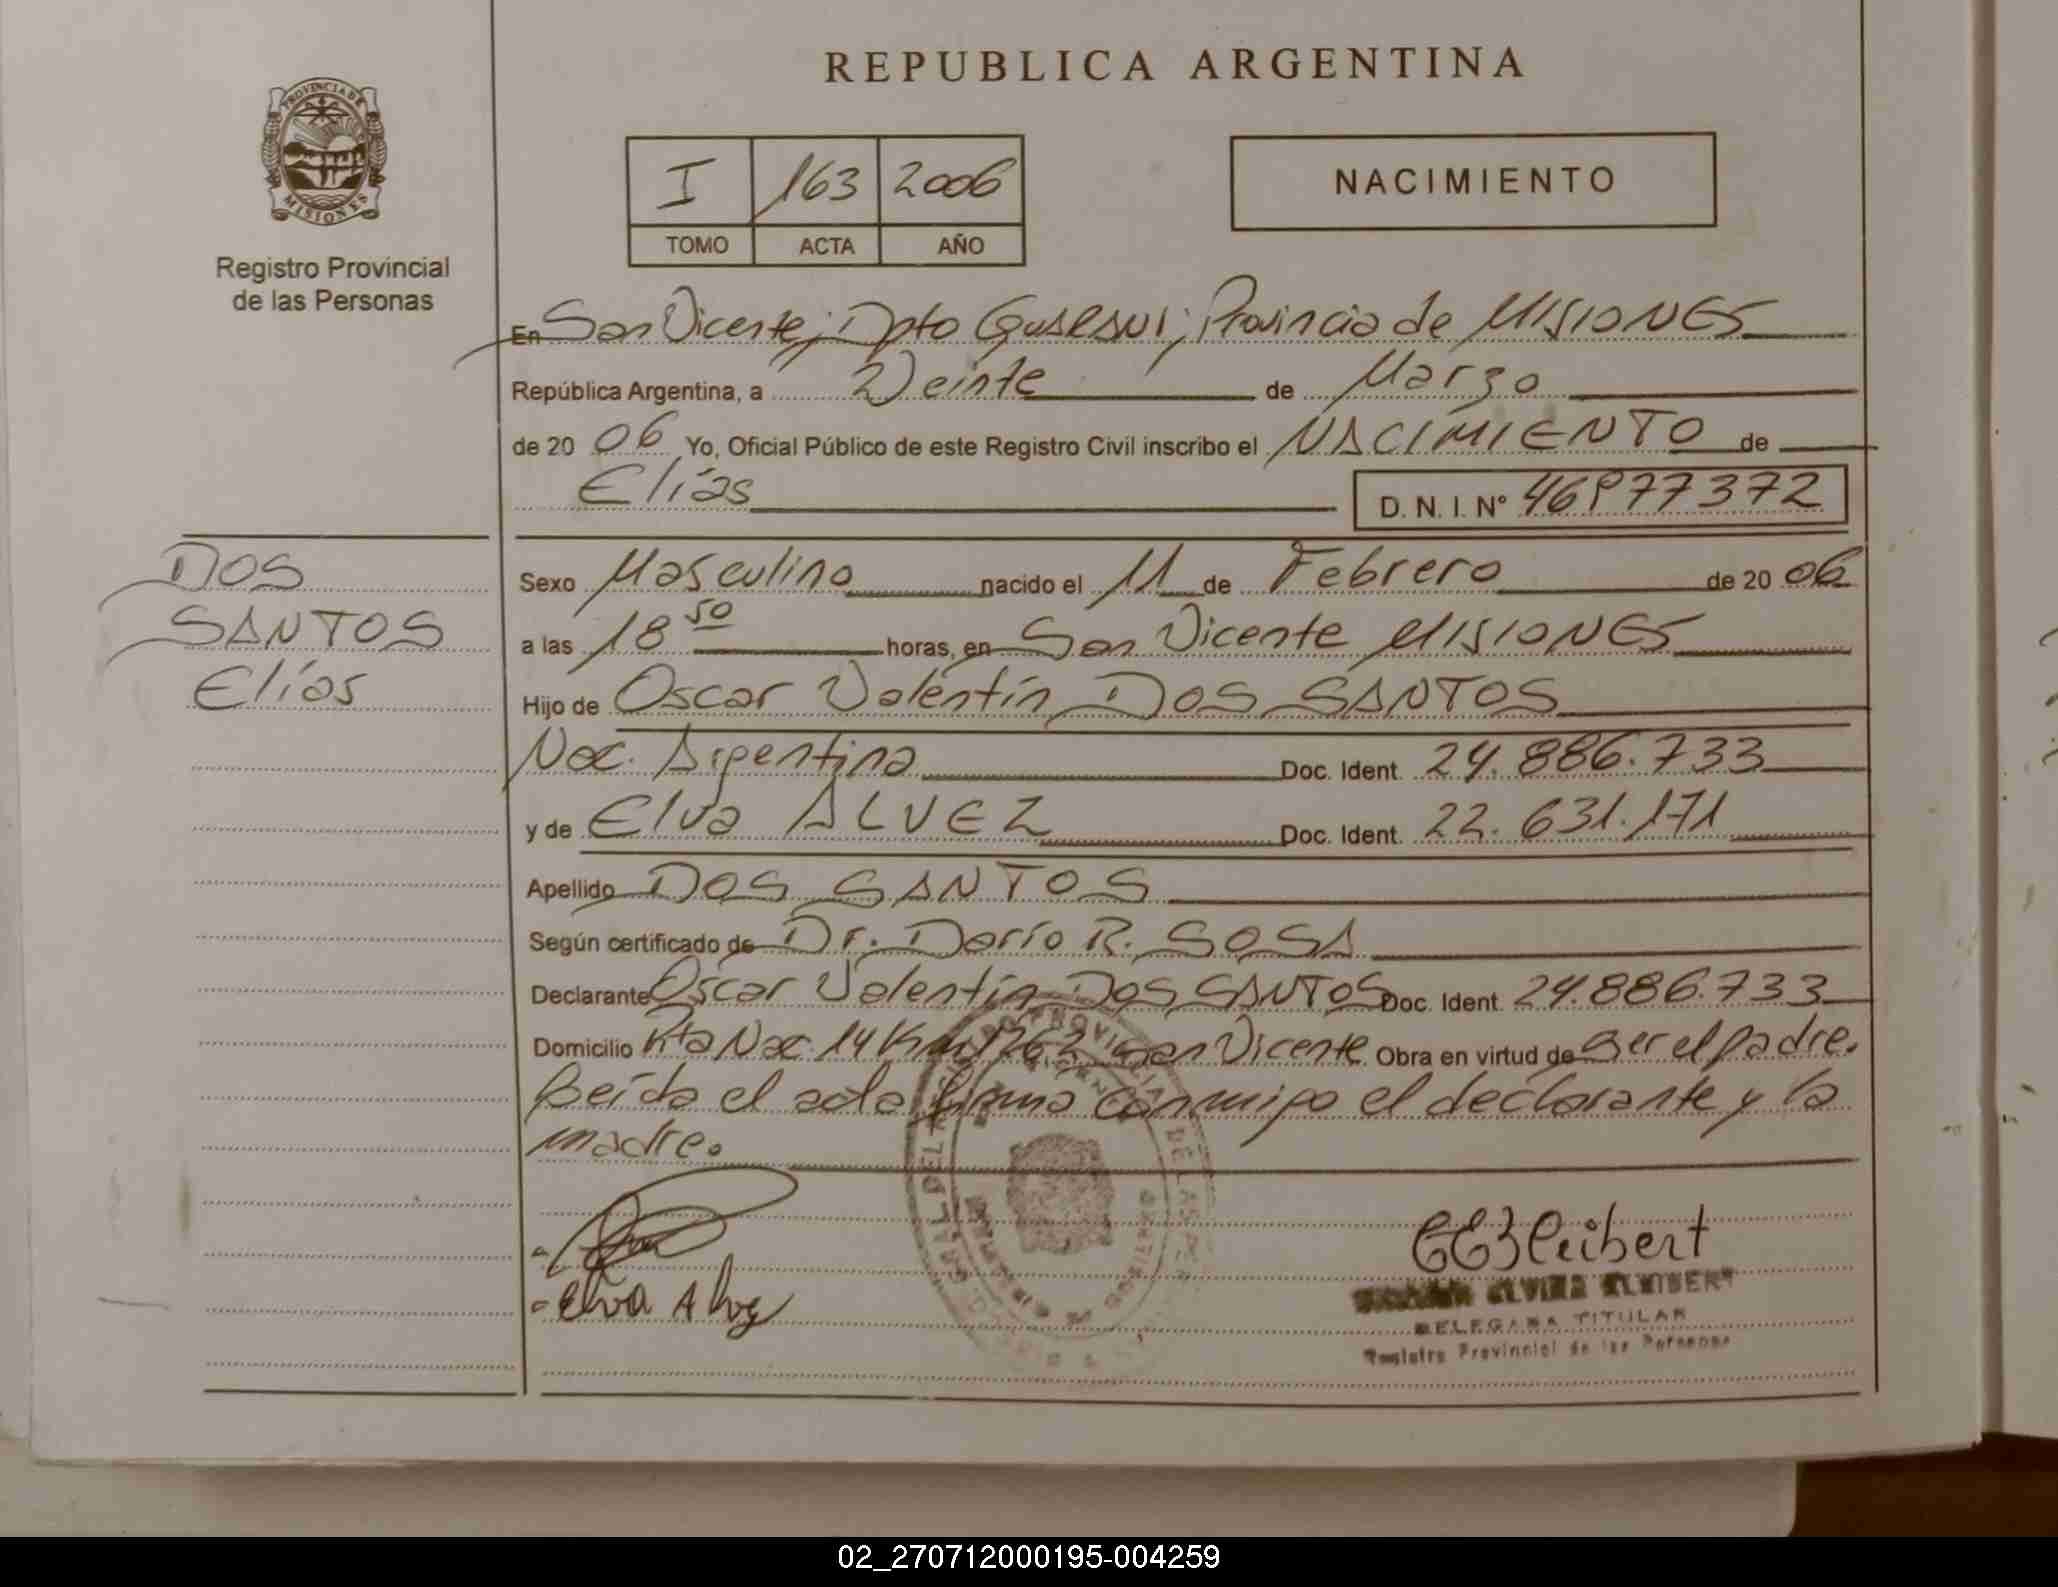 REPUBLICA ARGENTINA
PROVINCIA DE
MISIONES
Registro Provincial
de las Personas
I 163 2006
TOMO ACTA AÑO
NACIMIENTO
En San Vicente; Dpto GUARANI; Provincia de MISIONES
República Argentina, a Veinte de Marzo
de 20 06 Yo, Oficial Público de este Registro Civil inscribo el NACIMIENTO de
Elías D. N. I. Nº 46977372
DOS
SANTOS
Elías
Sexo Masculino nacido el 11 de Febrero de 20 06
a las 18 50 horas, en San Vicente MISIONES
Hijo de Oscar Valentín DOS SANTOS
Nac. Argentina Doc. Ident. 24.886.733
y de Elva ALVEZ Doc. Ident. 22.631.171
Apellido DOS SANTOS
Según certificado de Dr. Darío R. SOSA
Declarante Oscar Valentín DOS SANTOS Doc. Ident. 24.886.733
Domicilio Rta Nac. 14 Km 1262 San Vicente Obra en virtud de ser el padre.
Leída el acta firma conmigo el declarante y la
madre.
Elva Alvez
Kleibert
ELVIRA KLEIBERT
DELEGADA TITULAR
Registro Provincial de las Personas
02_270712000195-004259